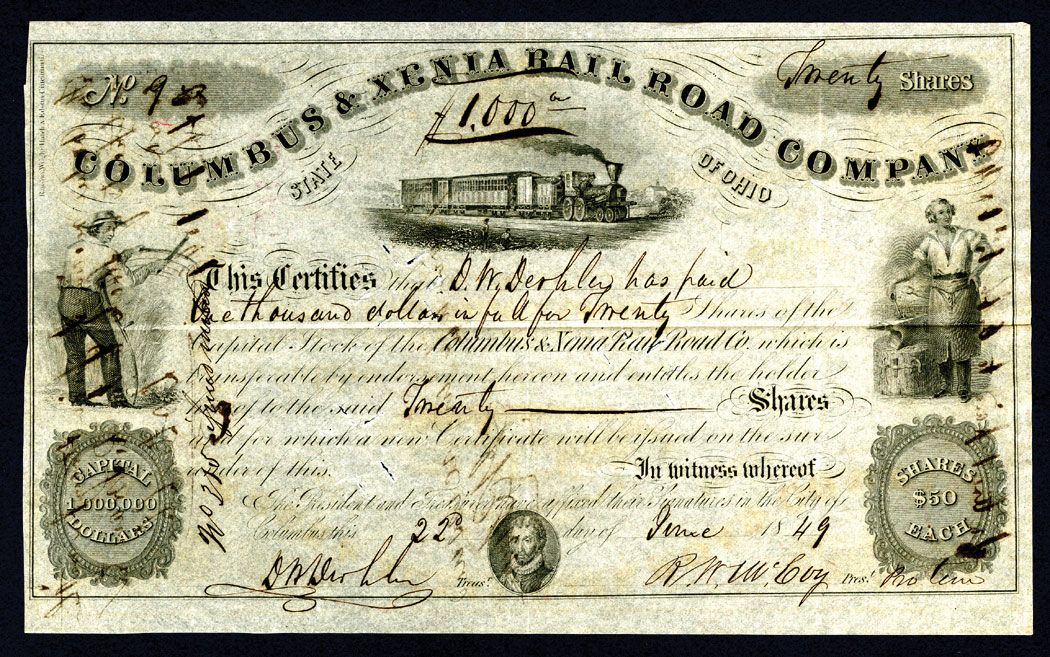 No 9
Twenty Shares
COLUMBUS & XENIA RAIL ROAD COMPANY
$1,000
STATE OF OHIO
This Certifies that D. W. Deshler has paid
One thousand dollars in full for Twenty Shares of the
Capital Stock of the Columbus & Xenia Rail Road Co. which is
transferable by endorsement hereon and entitles the holder
hereof to the said Twenty Shares
and for which a new Certificate will be issued on the sur
render of this.
In witness whereof
The President and Treasurer have affixed their signatures in the City of
Columbus this 22d day of June 1849
CAPITAL
1,000,000
DOLLARS
SHARES
$50
EACH
D W Deshler Treasr.
R. W. McCoy Prest. Pro tem